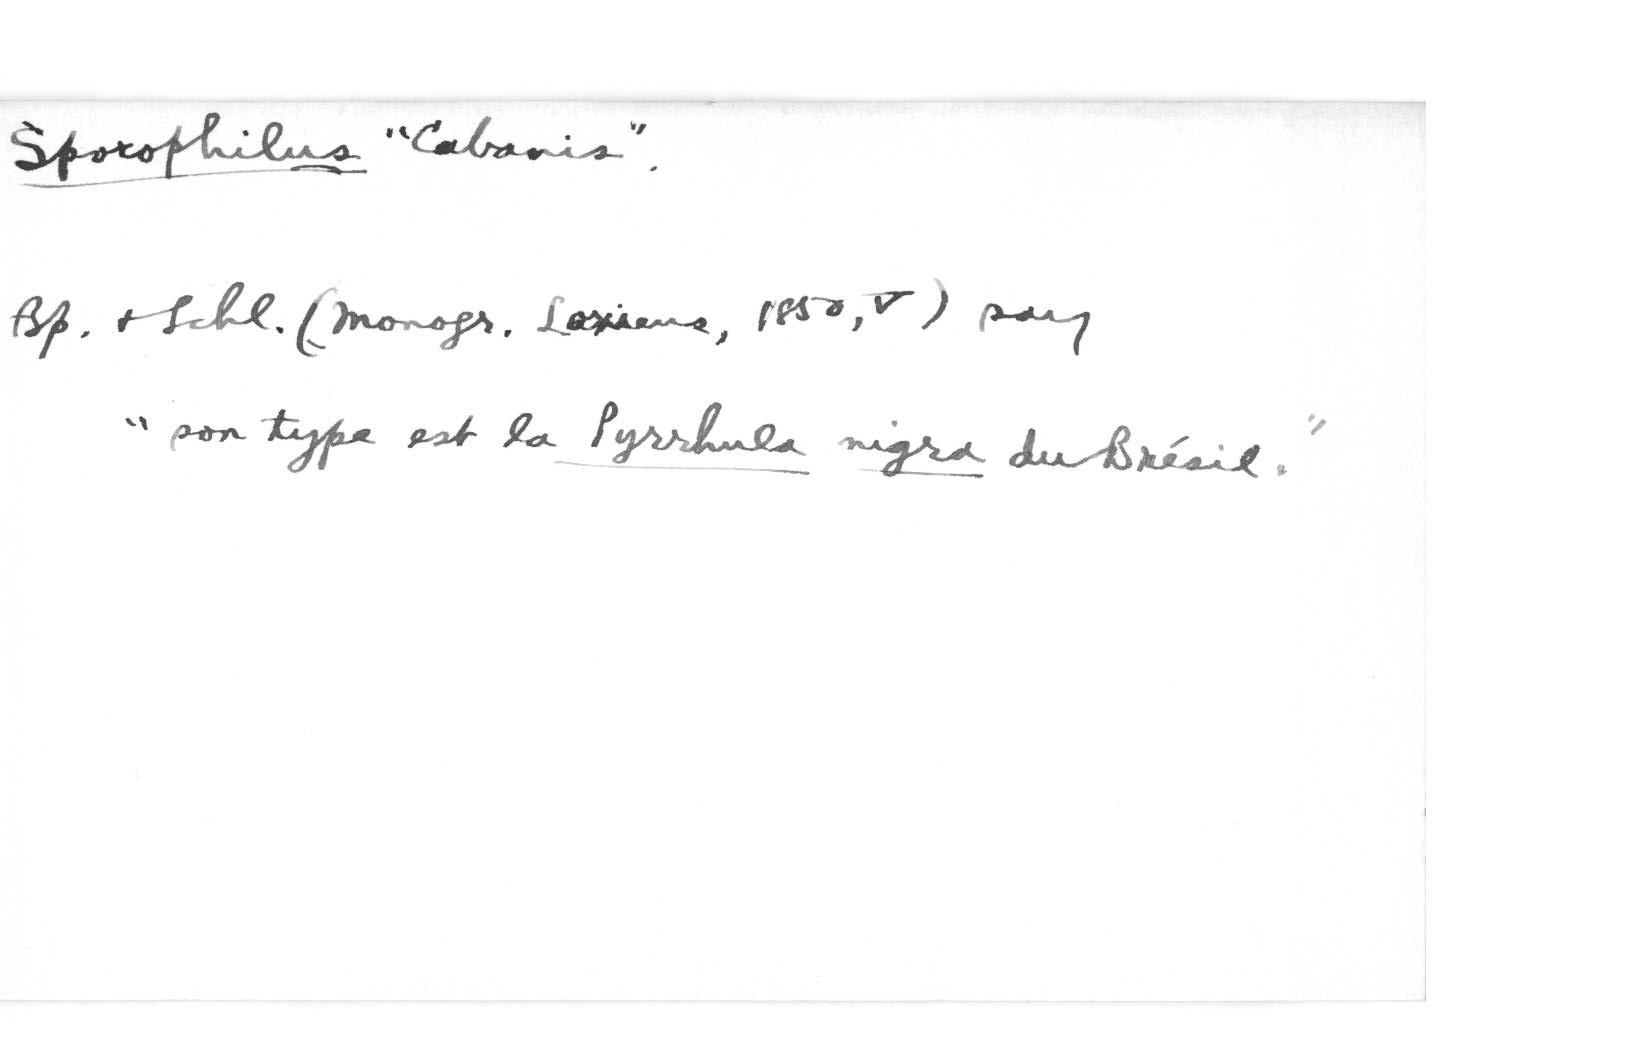 Sporophilus "Cabanis".
Bp. + Schl. (Monogr. Loxiens, 1850, V) say
"son type est la Pyrrhula nigra du Brésil."